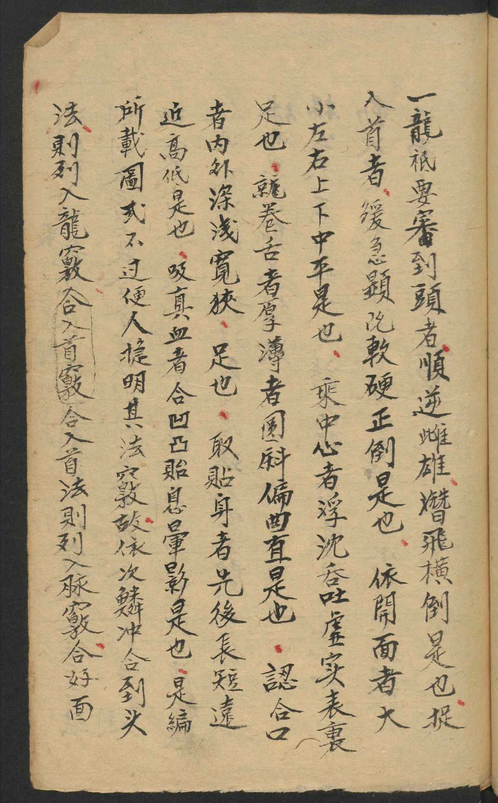 一龍祗要審到頭者順逆雌雄潛飛橫倒是也捉
入首者緩急顯陷軟硬正倒是也依開面者大
小左右上下中平是也乘中心者浮沈吞吐虛实表裏
足也就卷舌者厚薄者圓斜偏曲直是也認合口
者內外深浅寬狹足也取貼身者先後長短遠
近高低是也吸真血者合凹凸貽息暈影是也是編
所載圖式不过使人提明其法竅故依次鱗冲合到头
法則列入龍竅合入首竅合入首法則列入脉竅合好面